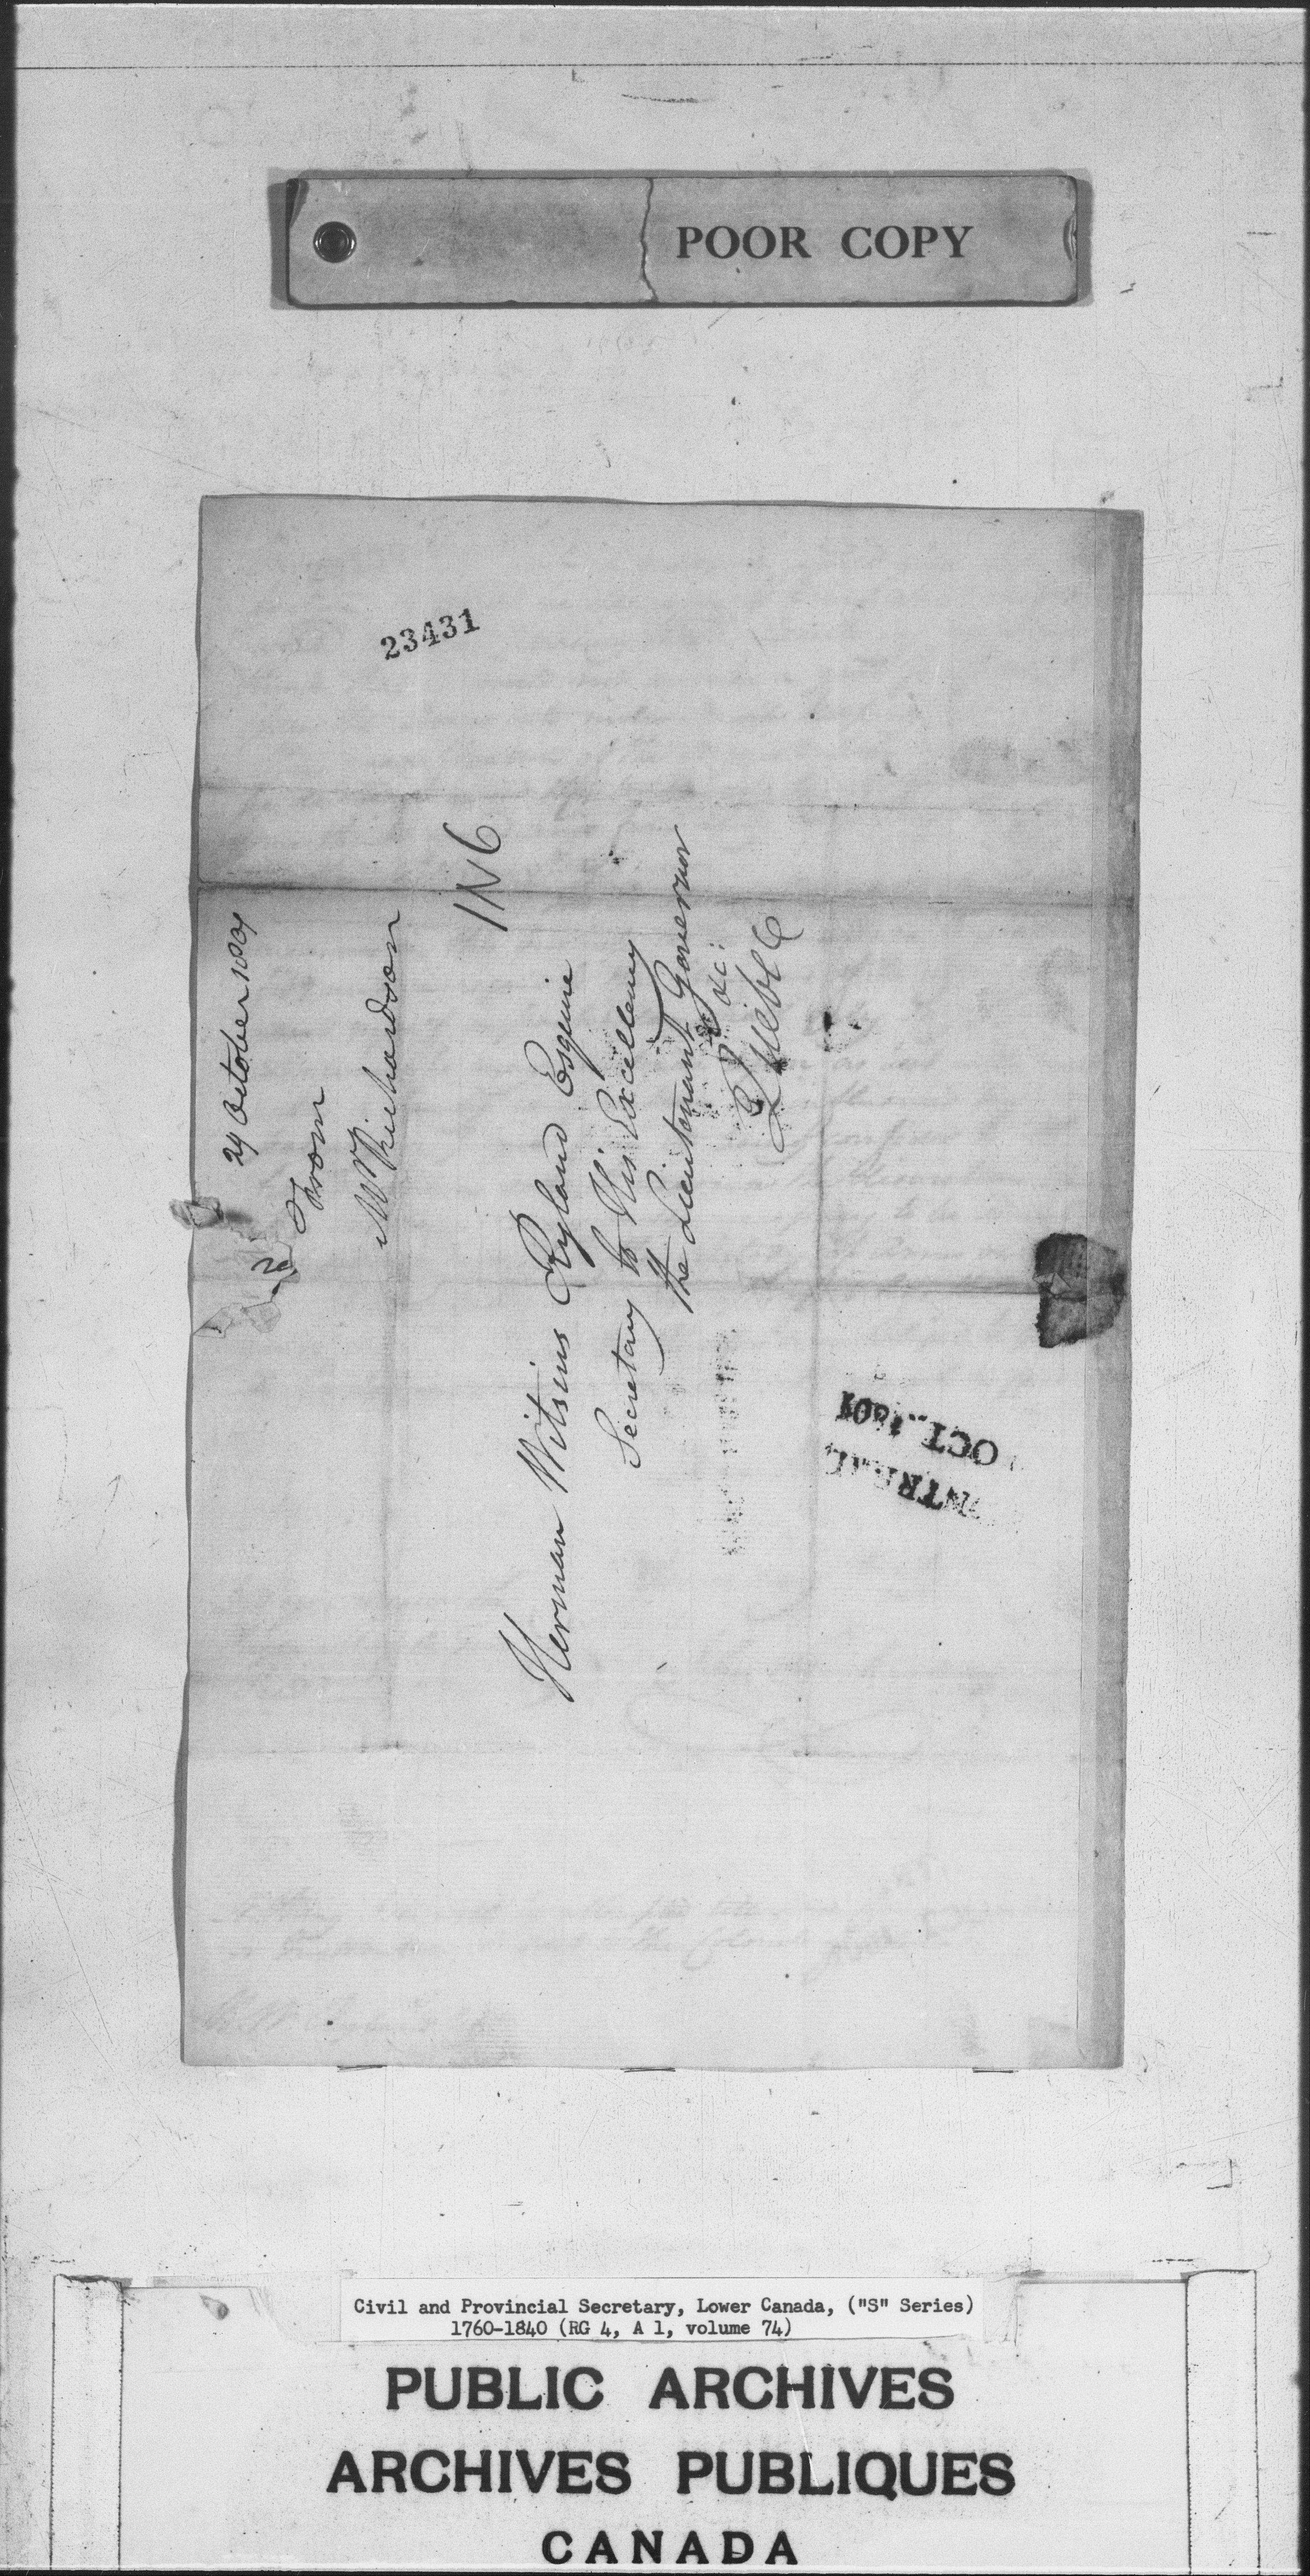 POOR COPY
23431
29 October 1801
From
Mr Richardson
1N6
Herman Witsius Ryland Esquire
Secretary to His Excellency
the Lieutenant Governor
&c:
Quebec
NTRE
OCT. 1801
Civil and Provincial Secretary, Lower Canada, ("S" Series)
1760-1840 (RG 4, A 1, volume 74)
PUBLIC ARCHIVES
ARCHIVES PUBLIQUES
CANADA